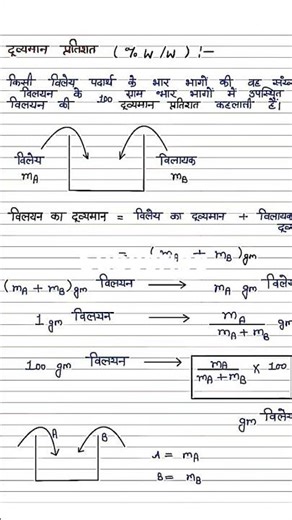 द्रव्यमान प्रतिशत ( % W / W ) :—
किसी विलेय पदार्थ के भार भागों की वह संख्या
विलयन के 100 ग्राम भार भागों में उपस्थित
विलयन की द्रव्यमान प्रतिशत कहलाती है।
विलेय विलायक
mA mB
विलयन का द्रव्यमान = विलेय का द्रव्यमान + विलायक
= (mA + mB) gm
(mA + mB) gm विलयन → mA gm विलेय
1 gm विलयन → mA / mA + mB gm
100 gm विलयन → mA / mA + mB × 100
gm विलेय
A B
A = mA
B = mB